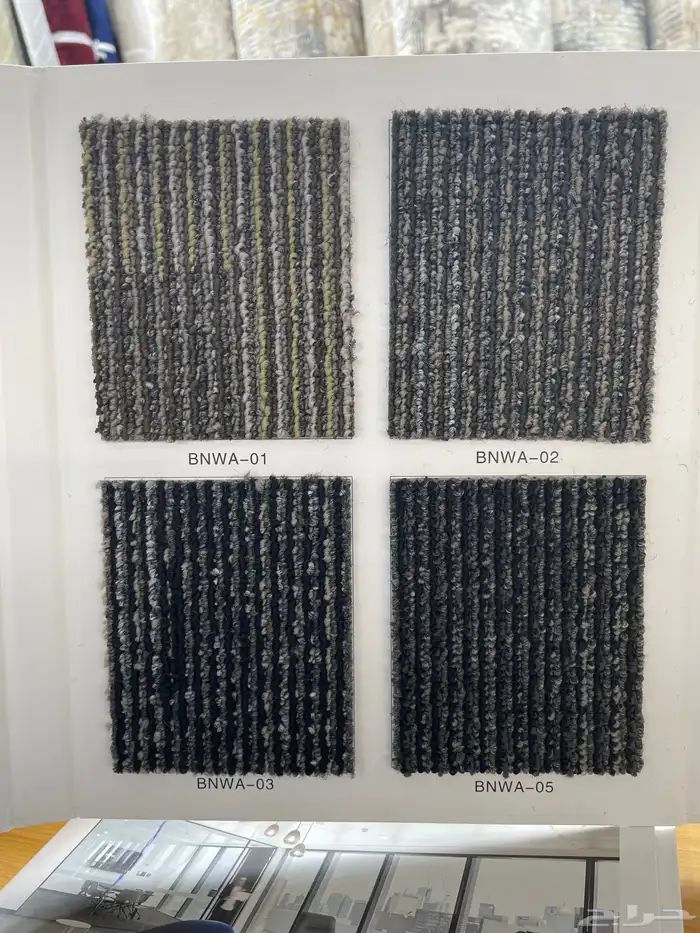 BNWA-01
BNWA-02
BNWA-03
BNWA-05
حراج